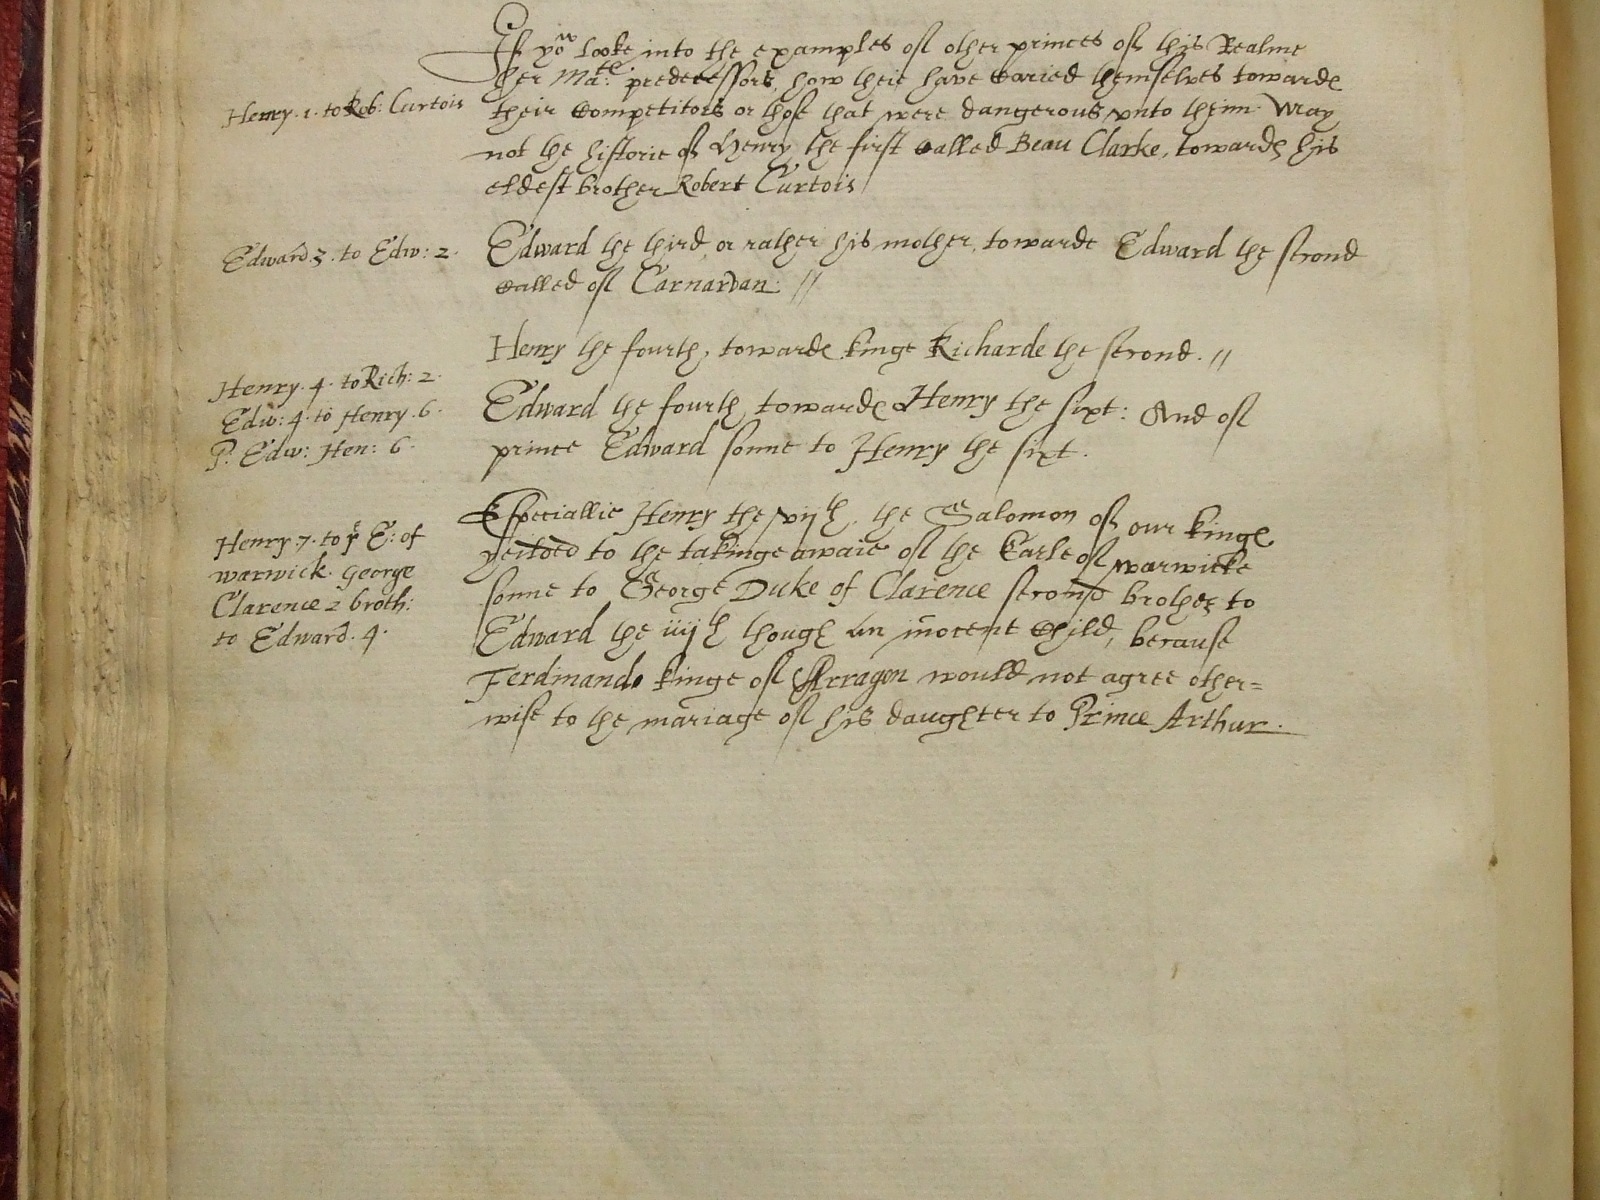 If yow looke into the examples of other princes of this Realme
her Matie: predecessors, how their have varied themselves towarde
Henry .1. to Rob: Curtois
their Competitors or those that were dangerous unto them. Way
not the historie of Henry the first called Beau Clarke, towardes his
eldest brother Robert Curtois
Edward .3. to Edw: 2.
Edward the third, or rather his mother, towarde Edward the second
called of Carnarvan: //
Henry the fourth, towardes kinge Richarde the second. //
Henry .4. to Rich: 2.
Edw: 4. to Henry .6.
P. Edw: Hen: 6.
Edward the fourth, towardes Henry the sixt: And of
prince Edward sonne to Henry the sixt.
Henry .7. to ye E: of
warwick. George
Clarence 2 broth:
to Edward .4.
Especiallie Henry the vijth, the Salomon of our kinges
yeilded to the takinge awaie of the Earle of warwicke
sonne to George Duke of Clarence second brother to
Edward the iiijth though an inocent Child, because
Ferdinando kinge of Arragon would not agree other=
wise to the mariage of his daughter to Prince Arthur.